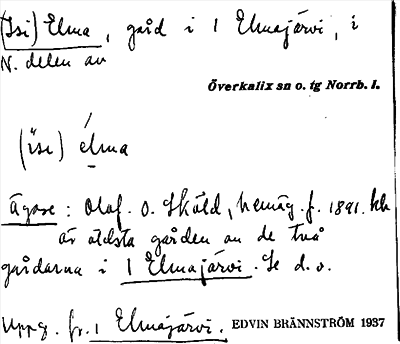 (Isi) Elma, gård i 1 Elmajärvi, i
N. delen av
Överkalix sn o. tg Norrb. l.
(isi) élma
Ägare: Olof. O. Sköld, hemäg. f. 1891.
är äldsta gården av de två
gårdarna i 1 Elmajärvi. Se d. o.
Uppg. fr. 1 Elmajärvi. EDVIN BRÄNNSTRÖM 1937